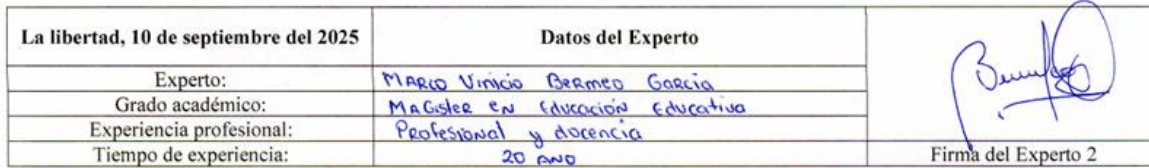 La libertad, 10 de septiembre del 2025 Datos del Experto
Experto: MARCO Vinicio BERMEO GARCIA
Grado académico: MAGISTER EN Educación Educativa
Experiencia profesional: Profesional y docencia
Tiempo de experiencia: 20 AÑO
Firma del Experto 2